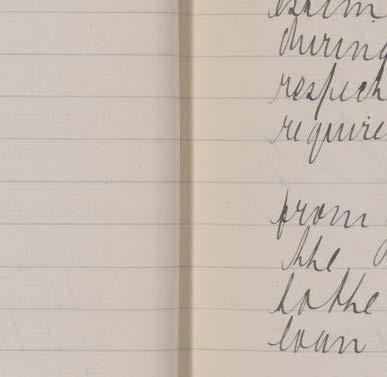 during
respect
require
from
the
to the
loan